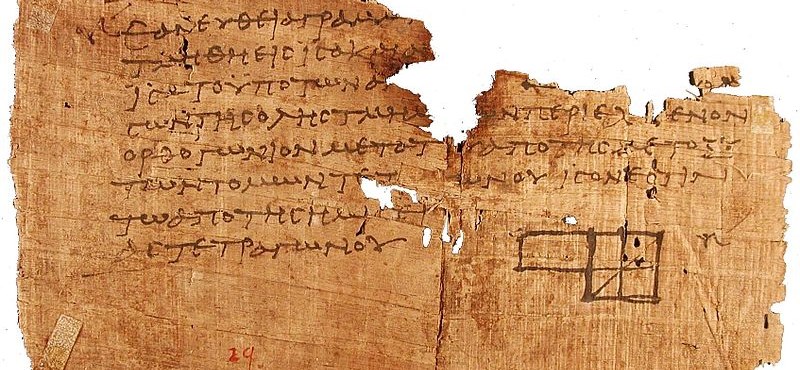 ΕΑΝ ΕΥΘΕΙΑ ΓΡΑΜΜ
ΤΜΗΘΗ ΕΙϹ ΙϹΑ ΚΑΙ
ΙϹΑ ΤΟ ΥΠΟ ΤΩΝ Α
ϹΩΝ ΤΗϹ ΟΛΗϹ ΤΜΗΜΑ Ν ΠΕΡΙΕΧ ΜΕΝΟΝ
ΟΡΘΟΓΩΝΙΟΝ ΜΕΤ ΤΟΥ ΑΠΟ ΤΗϹ ΜΕΤΟΞΥ
ΤΩΝ ΤΟΜΩΝ ΤΕΤ ΩΝΟΥ ΙϹΟΝ ΕϹΤΙΝ
ΤΩ ΑΠΟ ΤΗϹ ΗΜΙϹΕΙ
ΑϹ ΤΕΤΡΑΓΩΝΟΥ
29